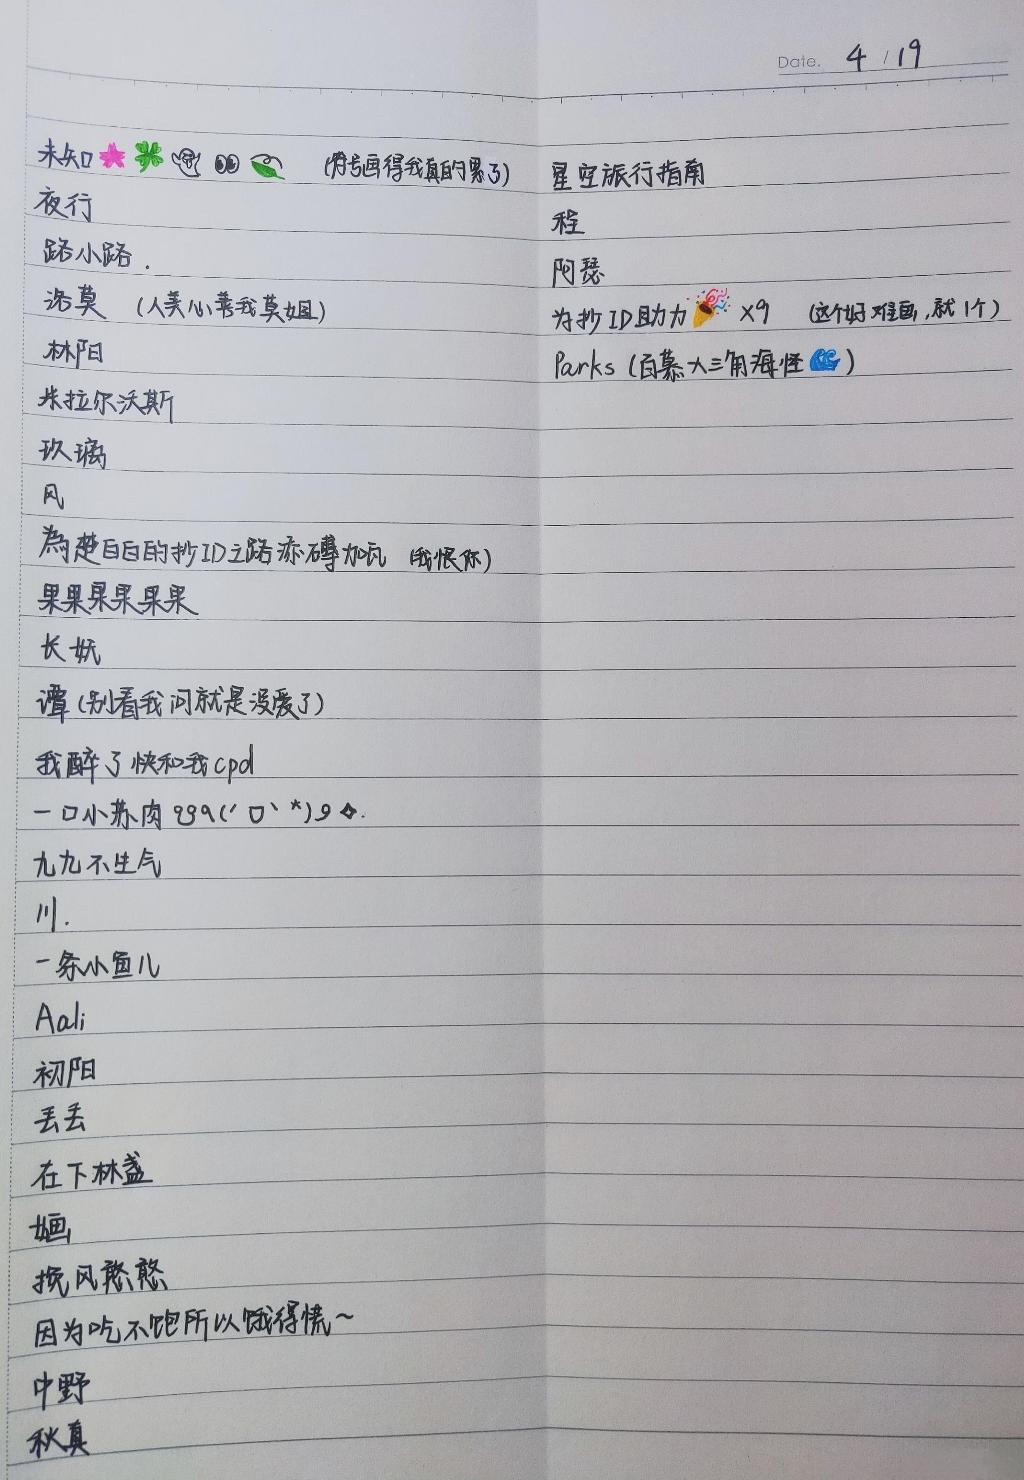 Date. 4 / 19
未知🌸🍀👀🍃 (符号画得我真的累了)
夜行
路小路.
洛莫 (人美心善我莫姐)
林阳
米拉尔沃斯
玖璃
风
為楚白白的抄ID之路添磚加瓦 (我恨你)
果果果果果果
长妩
谭(别看我问就是没爱了)
我醉了快和我cpd
一口小苏肉 ୧୨૧(′ロ‵*)୨✧.
九九不生气
川.
一条小鱼儿
Aali
初阳
丢丢
在下林盏
婳
挽风憨憨
因为吃不饱所以饿得慌~
中野
秋真
星空旅行指南
程
阿瑟
为抄ID助力🎉×9 (这个好难画,就1个)
Parks (百慕大三角海怪🌊)